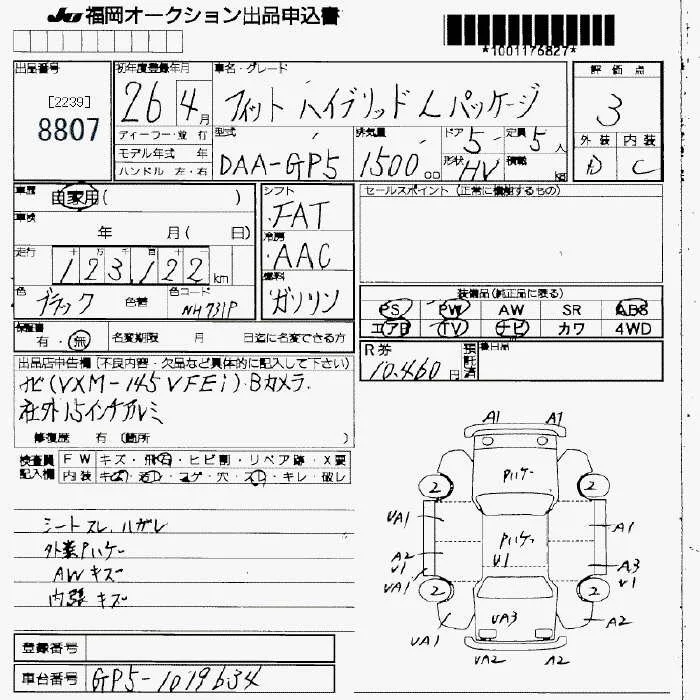 JU 福岡オークション出品申込書
*1001176827*
出品番号
[2239]
8807
初年度登録年月
26 4月
車名・グレード
フィット ハイブリッド Lパッケージ
評価点
3
外装 内装
D C
ディーラー・並行
モデル年式 年
ハンドル 左・右
型式
DAA-GP5
排気量
1500 cc
ドア 5
定員 5人
形状 HV
積載 kg
車歴 自家用 ( )
車検 年 月 ( 日)
走行 十 万 千
123,122 km
色 ブラック 色替 色コード NH731P
シフト
FAT
冷房
AAC
燃料
ガソリン
セールスポイント (正常に機能するもの)
装備品(純正品に限る)
PS PW AW SR ABS
エアB TV ナビ カワ 4WD
保証書
有・無 名変期限 月 日迄に名変できる方
R券
10,460円
預託済
出品店申告欄(不良内容・欠品など具体的に記入して下さい)
ナビ(VXM-145VFEi)・Bカメラ.
社外15インチアルミ
修復歴 有 (箇所 )
検査員記入欄
FW キズ・飛石・ヒビ割・リペア跡・X要
内装 キズ・汚れ・コゲ・穴・スレ・キレ・破レ
シートスレ、ハガレ
外装Pハゲ
AWキズ
内張キズ
登録番号
車台番号
GP5-1019634
A1 A1
Pハゲ
2 2
UA1 A1
Pハゲ
V1
A2
V1
A3
V1
UA1
2 2
UA3
UA1 A2
UA2 A2